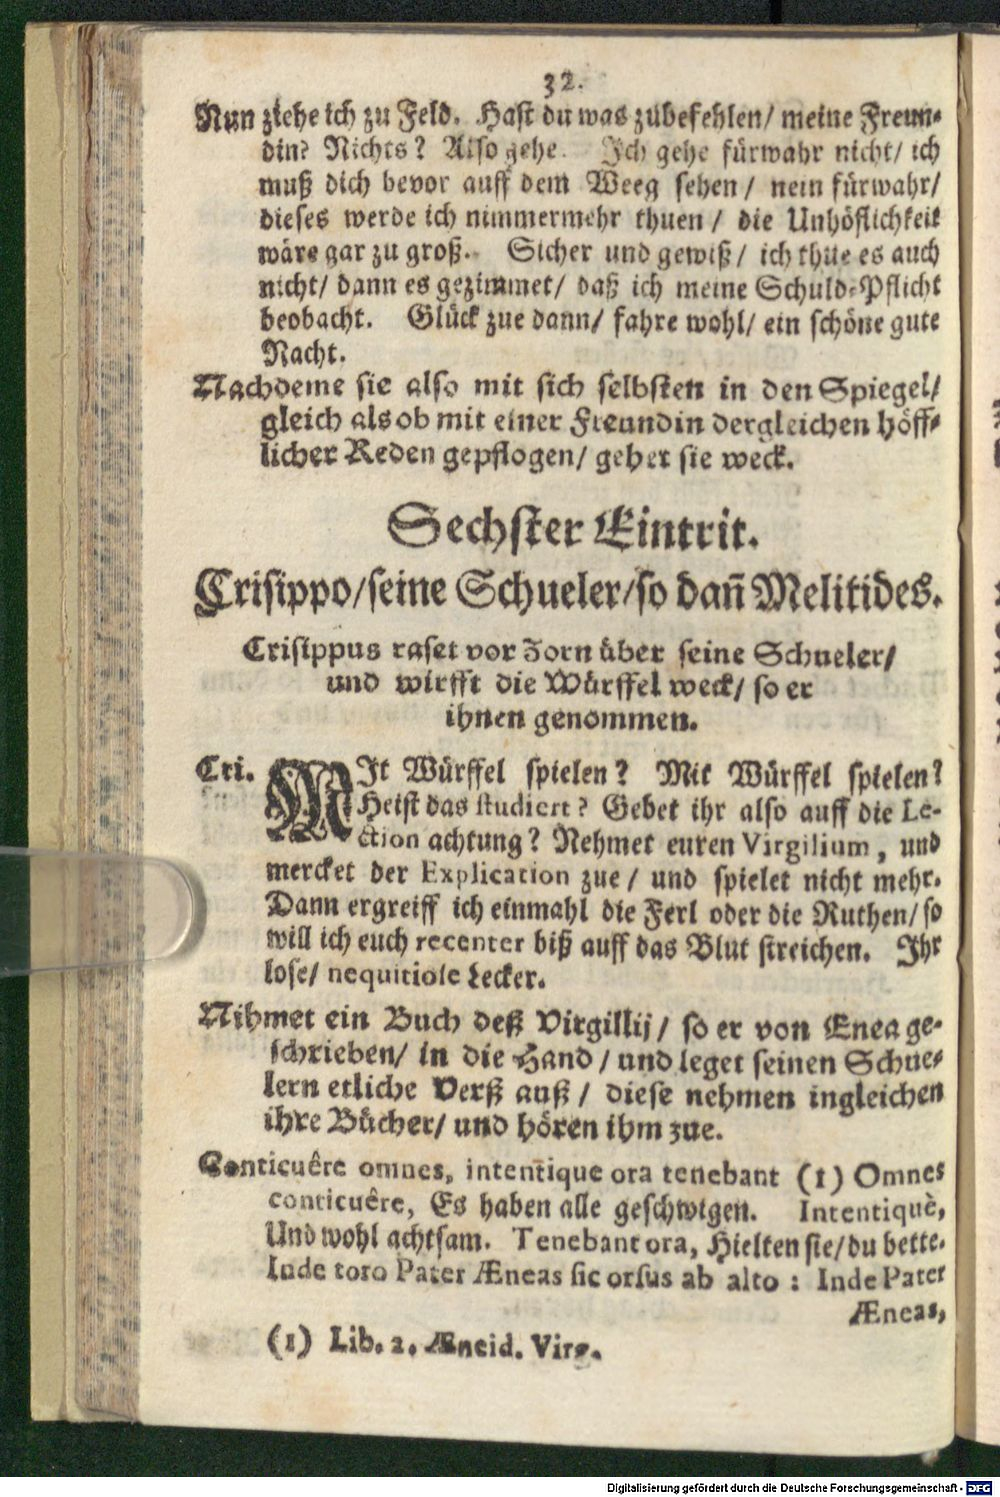 32.
Nun ziehe ich zu Feld. Hast du was zubefehlen/ meine Freun-
din? Nichts? Also gehe. Ich gehe fürwahr nicht/ ich
muß dich bevor auff dem Weeg sehen/ nein fürwahr/
dieses werde ich nimmermehr thuen/ die Unhöflichkeit
wäre gar zu groß. Sicher und gewiß/ ich thue es auch
nicht/ dann es gezimmet/ daß ich meine Schuld-Pflicht
beobacht. Glück zue dann/ fahre wohl/ ein schöne gute
Nacht.
Nachdeme sie also mit sich selbsten in den Spiegel/
gleich als ob mit einer Freundin dergleichen höff-
licher Reden gepflogen/ gehet sie weck.
Sechster Eintrit.
Crisippo/seine Schueler/so dan̄ Melitides.
Crisippus raset vor Zorn über seine Schueler/
und wirfft die Würffel weck/ so er
ihnen genommen.
Cri. MIt Würffel spielen? Mit Würffel spielen?
Heist das studiert? Gebet ihr also auff die Le-
ction achtung? Nehmet euren Virgilium, und
mercket der Explication zue/ und spielet nicht mehr.
Dann ergreiff ich einmahl die Ferl oder die Ruthen/ so
will ich euch recenter biß auff das Blut streichen. Ihr
lose/ nequitiose Lecker.
Nihmet ein Buch deß Virgillij/ so er von Enea ge-
schrieben/ in die Hand/ und leget seinen Schue-
lern etliche Verß auß/ diese nehmen ingleichen
ihre Bücher/ und hören ihm zue.
Conticuêre omnes, intentique ora tenebant (1) Omnes
conticuêre, Es haben alle geschwigen. Intentiquè,
Und wohl achtsam. Tenebant ora, Hielten sie/du bette.
Inde toro Pater Æneas sic orsus ab alto: Inde Pater
Æneas,
(1) Lib. 2. Æneid. Virg.
Digitalisierung gefördert durch die Deutsche Forschungsgemeinschaft - DFG